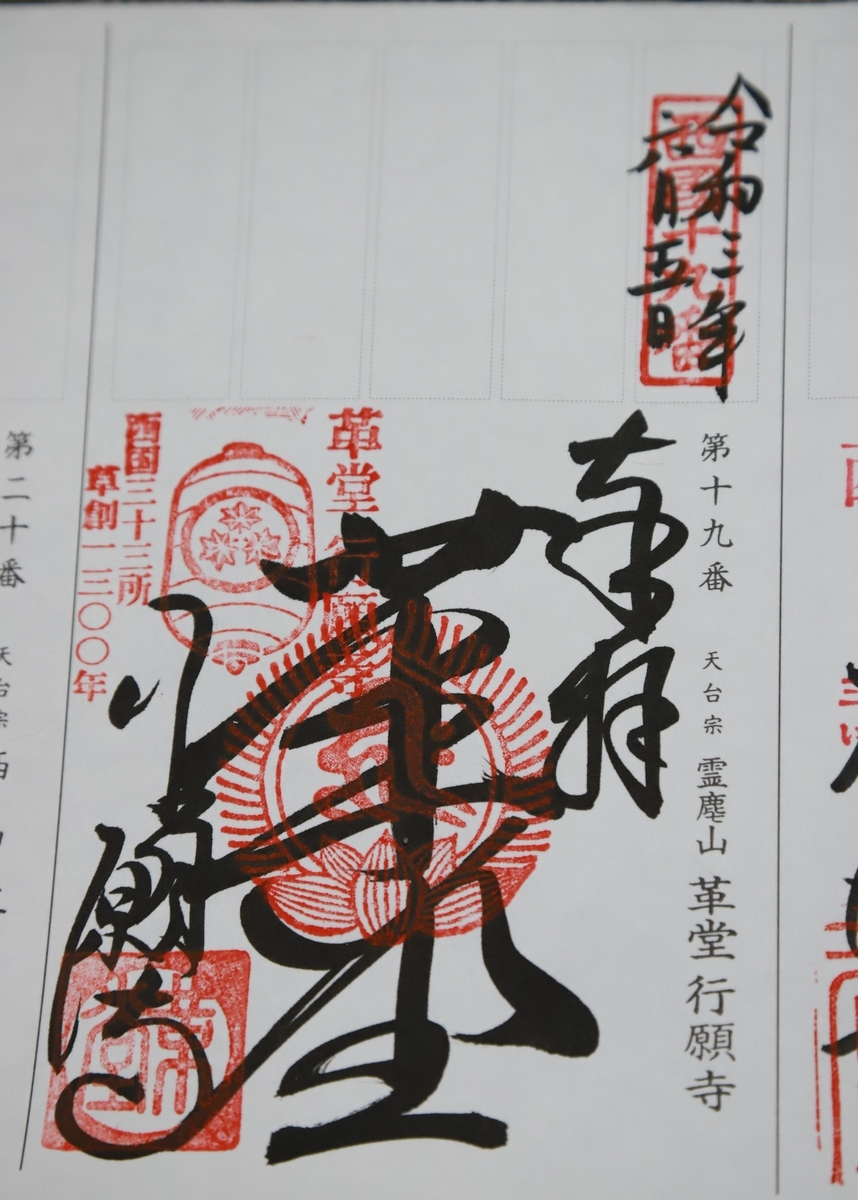 令和三年
六月五日
西国十九番
第十九番 天台宗 霊麀山 革堂 行願寺
奉拝
革堂
革堂 行願寺
西国三十三所
草創一三〇〇年
行願寺
第二十番 天台宗 西